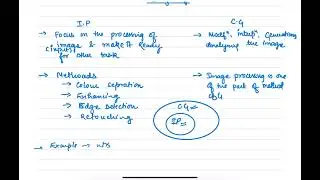 I.P
→ Focus on the processing of
image & make it ready
(inputs)
for other task
→ Methods
→ Colour sepration
→ Enhancing
→ Edge detection
→ Retouching
→ Example →
C.G
analysing the image
→ Image processing is one
of the part of method
of CG
CG
IP